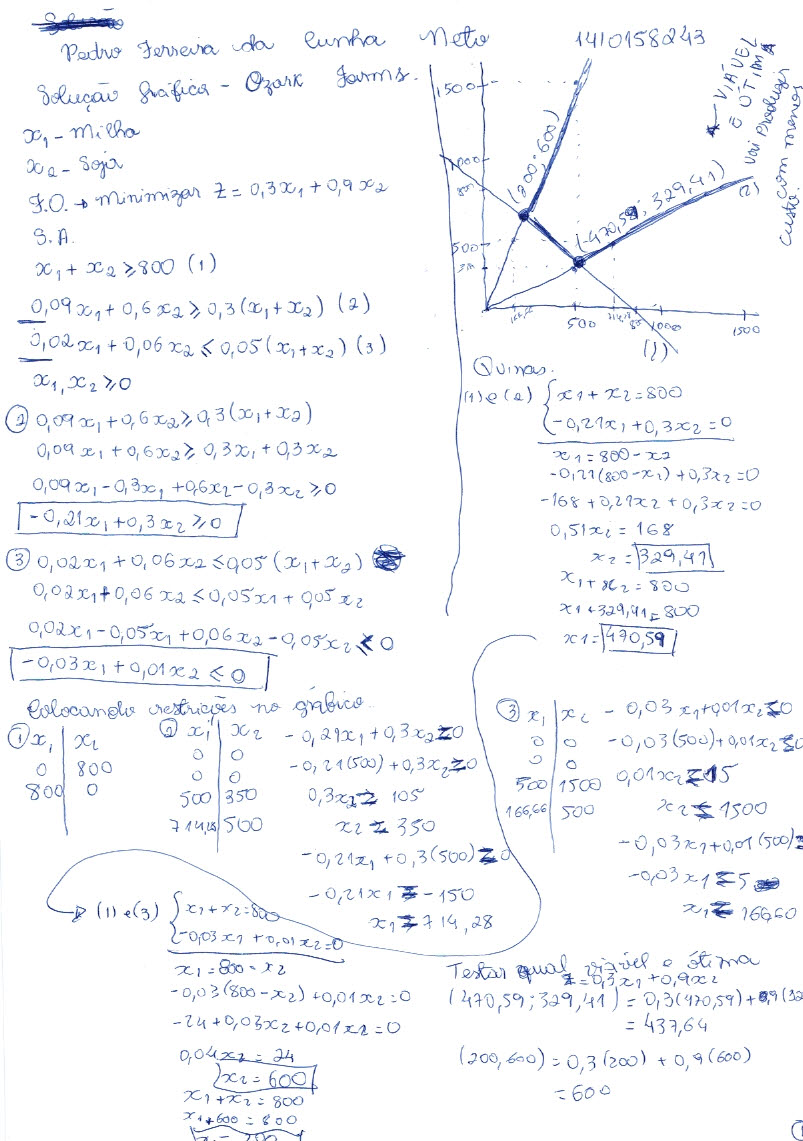 Pedro Ferreira da Cunha Neto 1410158243
Solução Gráfica - Ozark Farms.
x₁ - Milho
x₂ - Soja
F.O. → minimizar Z = 0,3x₁ + 0,9x₂
S.A.
x₁ + x₂ ≥ 800 (1)
0,09x₁ + 0,6x₂ ≥ 0,3(x₁ + x₂) (2)
0,02x₁ + 0,06x₂ ≤ 0,05(x₁ + x₂) (3)
x₁, x₂ ≥ 0
② 0,09x₁ + 0,6x₂ ≥ 0,3(x₁ + x₂)
0,09x₁ + 0,6x₂ ≥ 0,3x₁ + 0,3x₂
0,09x₁ - 0,3x₁ + 0,6x₂ - 0,3x₂ ≥ 0
-0,21x₁ + 0,3x₂ ≥ 0
③ 0,02x₁ + 0,06x₂ ≤ 0,05(x₁ + x₂)
0,02x₁ + 0,06x₂ ≤ 0,05x₁ + 0,05x₂
0,02x₁ - 0,05x₁ + 0,06x₂ - 0,05x₂ ≤ 0
-0,03x₁ + 0,01x₂ ≤ 0
1500
1000
800
500
(200; 600)
(470,59; 329,41)
(2)
500
1000
1500
(1)
VIÁVEL
E ÓTIMA
Vai Produzir
com menos
custo.
Quinas.
(1) e (2) { x₁ + x₂ = 800
-0,21x₁ + 0,3x₂ = 0
x₁ = 800 - x₂
-0,21(800 - x₁) + 0,3x₂ = 0
-168 + 0,21x₂ + 0,3x₂ = 0
0,51x₂ = 168
x₂ = 329,41
x₁ + x₂ = 800
x₁ + 329,41 = 800
x₁ = 470,59
Colocando restrições no gráfico.
① x₁ | x₂
0 | 800
800 | 0
② x₁ | x₂
0 | 0
0 | 0
500 | 350
714,28 | 500
-0,21x₁ + 0,3x₂ = 0
-0,21(500) + 0,3x₂ = 0
0,3x₂ = 105
x₂ = 350
-0,21x₁ + 0,3(500) = 0
-0,21x₁ = -150
x₁ = 714,28
③ x₁ | x₂
0 | 0
0 | 0
500 | 1500
166,66 | 500
-0,03x₁ + 0,01x₂ ≤ 0
-0,03(500) + 0,01x₂ ≤ 0
0,01x₂ ≤ 15
x₂ ≤ 1500
-0,03x₁ + 0,01(500) =
-0,03x₁ = 5
x₁ = 166,60
(1) e (3) { x₁ + x₂ = 800
-0,03x₁ + 0,01x₂ = 0
x₁ = 800 - x₂
-0,03(800 - x₂) + 0,01x₂ = 0
-24 + 0,03x₂ + 0,01x₂ = 0
0,04x₂ = 24
x₂ = 600
x₁ + x₂ = 800
x₁ + 600 = 800
Testar qual viável e ótima
Z = 0,3x₁ + 0,9x₂
(470,59; 329,41) = 0,3(470,59) + 0,9(32
= 437,64
(200, 600) = 0,3(200) + 0,9(600)
= 600